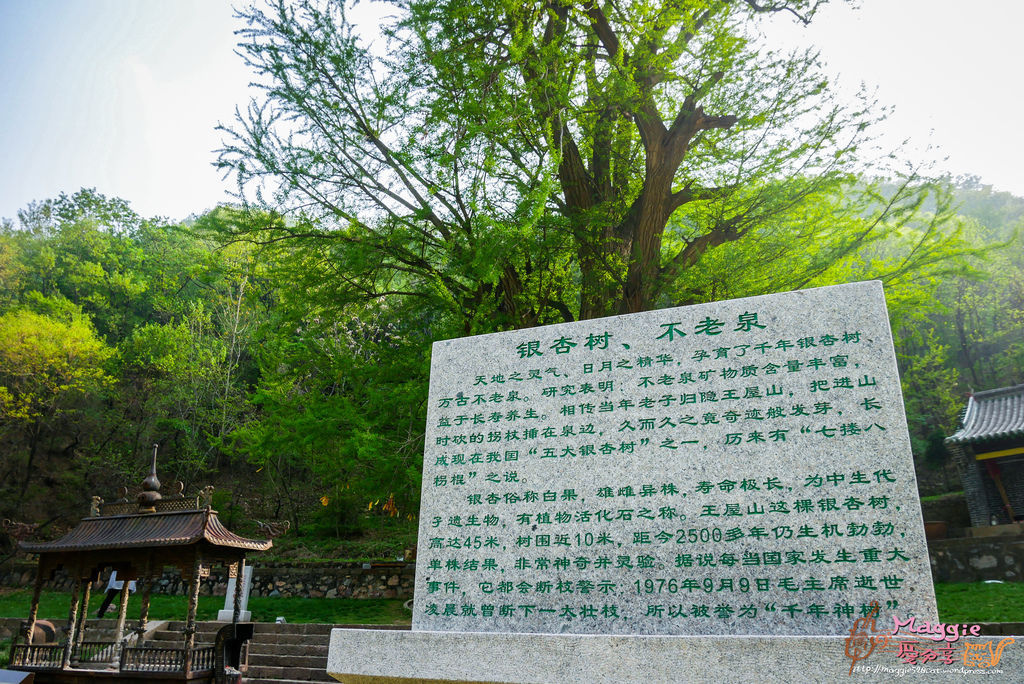 银杏树、不老泉
天地之灵气、日月之精华，孕育了千年银杏树、
万古不老泉。研究表明：不老泉矿物质含量丰富，
益于长寿养生。相传当年老子归隐王屋山，把进山
时砍的拐杖插在泉边，久而久之竟奇迹般发芽，长
成现在我国“五大银杏树”之一，历来有“七搂八
拐棍”之说。
银杏俗称白果，雄雌异株，寿命极长，为中生代
孑遗生物，有植物活化石之称。王屋山这棵银杏树，
高达45米，树围近10米，距今2500多年仍生机勃勃，
单株结果，非常神奇并灵验。据说每当国家发生重大
事件，它都会断枝警示，1976年9月9日毛主席逝世
凌晨就曾断下一大壮枝，所以被誉为“千年神树”
Maggie
爱分享
http://maggie526cat.wordpress.com